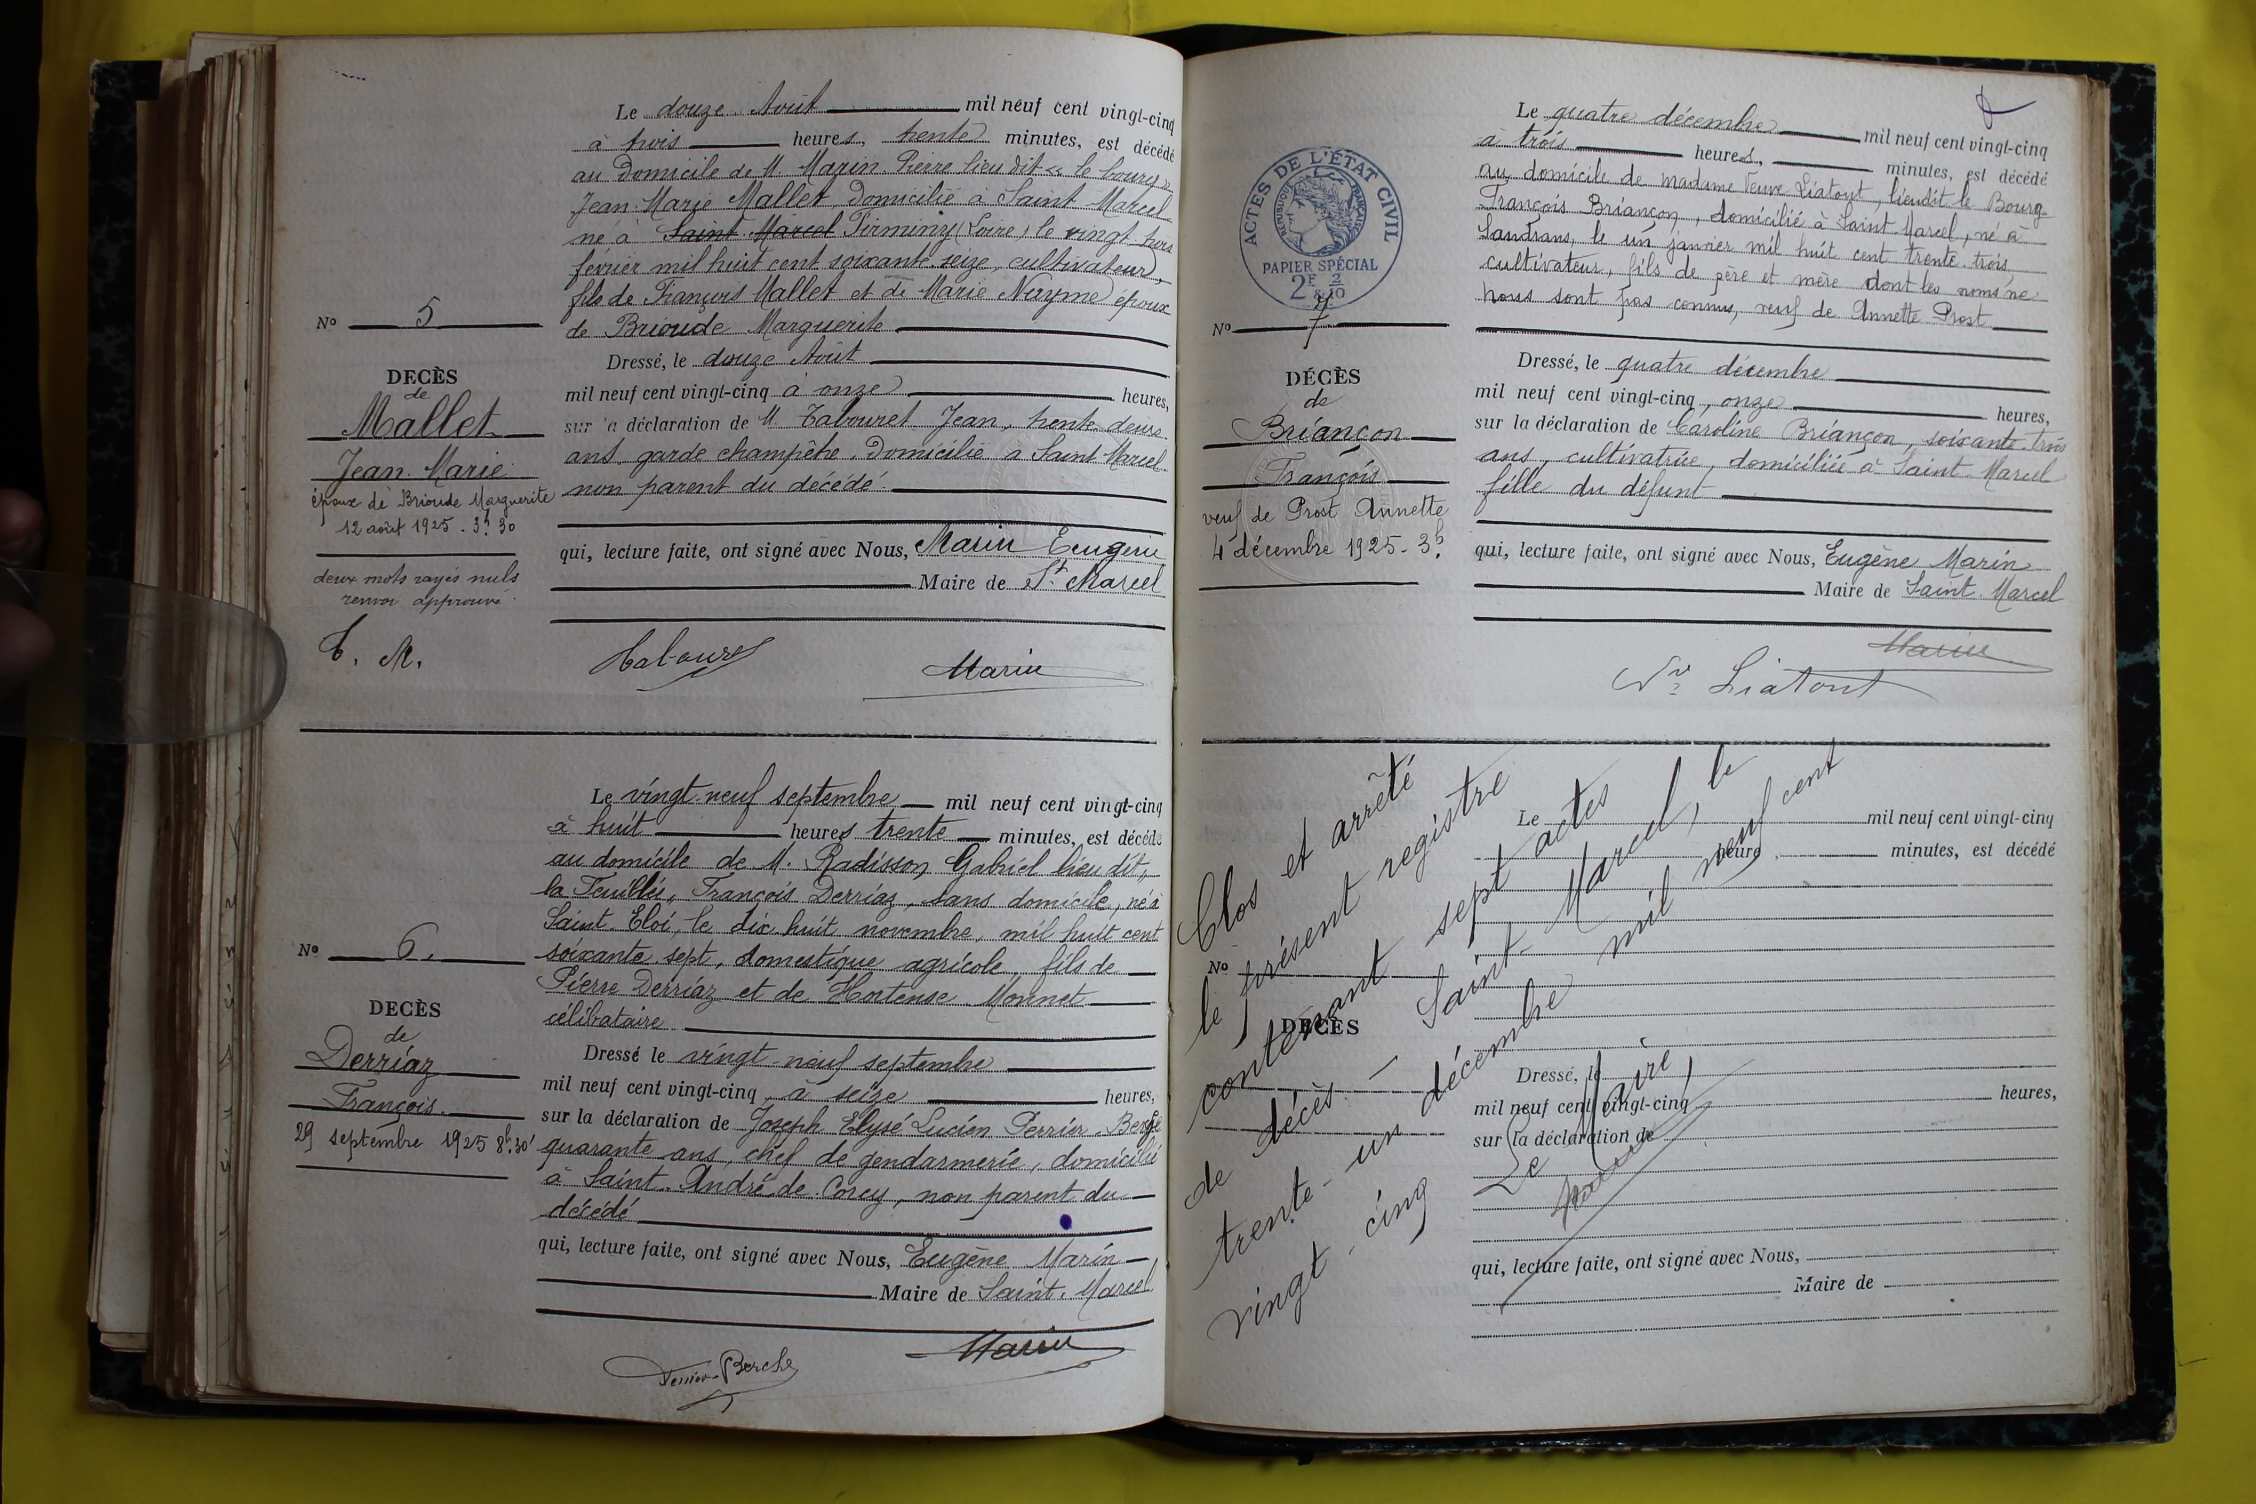 Le douze Août mil neuf cent vingt-cinq
à trois heures, trente minutes, est décédé
au domicile de M. Marin Pierre lieu dit « le bourg »
Jean-Marie Mallet, domicilié à Saint Marcel
né à Saint Marcel Firminy (Loire) le vingt trois
fevrier mil huit cent soixante seize, cultivateur,
fils de François Mallet et de Marie Nayme époux
de Brioude Marguerite
Dressé, le douze Août
mil neuf cent vingt-cinq à onze heures,
sur la déclaration de M. Tabouret Jean, trente deux
ans garde champêtre, domicilié à Saint Marcel
non parent du décédé
qui, lecture faite, ont signé avec Nous, Marin Eugene
Maire de St Marcel
No 5
DECÈS
de
Mallet
Jean-Marie
époux de Brioude Marguerite
12 août 1925 - 3h 30
deux mots rayés nuls
renvoi approuvé.
E. M.
Tabouret
Marin
Le vingt-neuf septembre mil neuf cent vingt-cinq
à huit heures trente minutes, est décédé
au domicile de M. Radisson Gabriel lieu dit,
la Feuillée, François Derriaz, sans domicile, né à
Saint-Eloi, le dix huit novembre, mil huit cent
soixante sept, domestique agricole, fils de
Pierre Derriaz et de Hortense Monnet
célibataire
Dressé le vingt-neuf septembre
mil neuf cent vingt-cinq, à seize heures,
sur la déclaration de Joseph Elysé Lucien Perrier-Berche
quarante ans, chef de gendarmerie, domicilié
à Saint-André-de-Corcy, non parent du
décédé
qui, lecture faite, ont signé avec Nous, Eugène Marin
Maire de Saint-Marcel
No 6.
DECÈS
de
Derriaz
François.
29 septembre 1925 8h.30'
Perrier-Berche
Marin
Le quatre décembre mil neuf cent vingt-cinq
à trois heures, minutes, est décédé
au domicile de madame Veuve Liatout, lieudit le Bourg
François Briançon, domicilié à Saint Marcel, né à
Sandrans, le un janvier mil huit cent trente-trois,
cultivateur, fils de père et mère dont les noms ne
nous sont pas connus, veuf de Annette Prost
Dressé, le quatre décembre
mil neuf cent vingt-cinq, onze heures,
sur la déclaration de Caroline Briançon, soixante-trois
ans, cultivatrice, domiciliée à Saint Marcel
fille du défunt
qui, lecture faite, ont signé avec Nous, Eugène Marin
Maire de Saint-Marcel
ACTES DE L'ÉTAT CIVIL
RÉPUBLIQUE FRANÇAISE
PAPIER SPÉCIAL
2F & 2/10
No 7
DÉCÈS
de
Briançon
François
veuf de Prost Annette
4 décembre 1925 - 3h.
Marin
Vve Liatout
Clos et arrêté
le présent registre
contenant sept actes
de décès - Saint-Marcel, le
trente-un décembre mil neuf cent
vingt-cinq
Le Maire,
Marin
Le mil neuf cent vingt-cinq
heure minutes, est décédé
No
DECÈS
Dressé, le
mil neuf cent vingt-cinq heures,
sur la déclaration de
qui, lecture faite, ont signé avec Nous,
Maire de